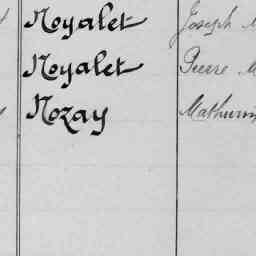 Noyalet Joseph
Noyalet Pierre
Nozay Mathurin